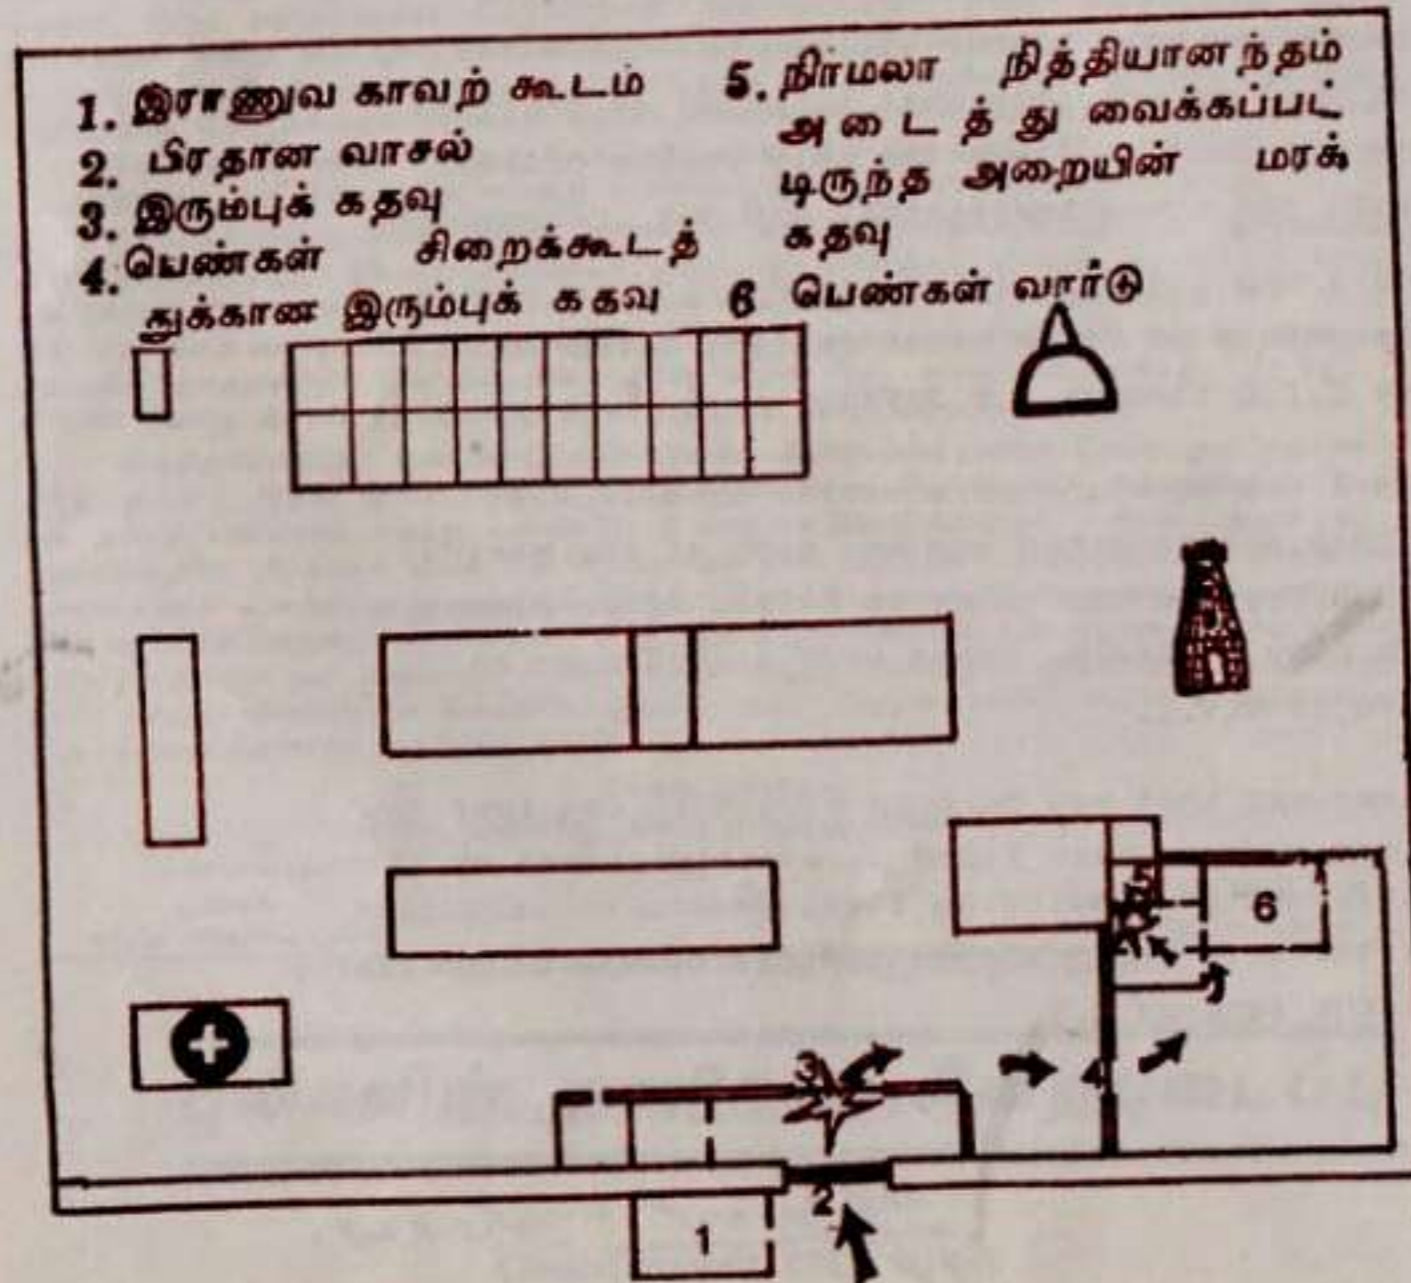 1. இராணுவ காவற் கூடம்
2. பிரதான வாசல்
3. இரும்புக் கதவு
4. பெண்கள் சிறைக்கூடத்
துக்கான இரும்புக் கதவு
5. நிர்மலா நித்தியானந்தம்
அடைத்து வைக்கப்பட்
டிருந்த அறையின் மரக்
கதவு
6 பெண்கள் வார்டு
5
6
3
4
2
1